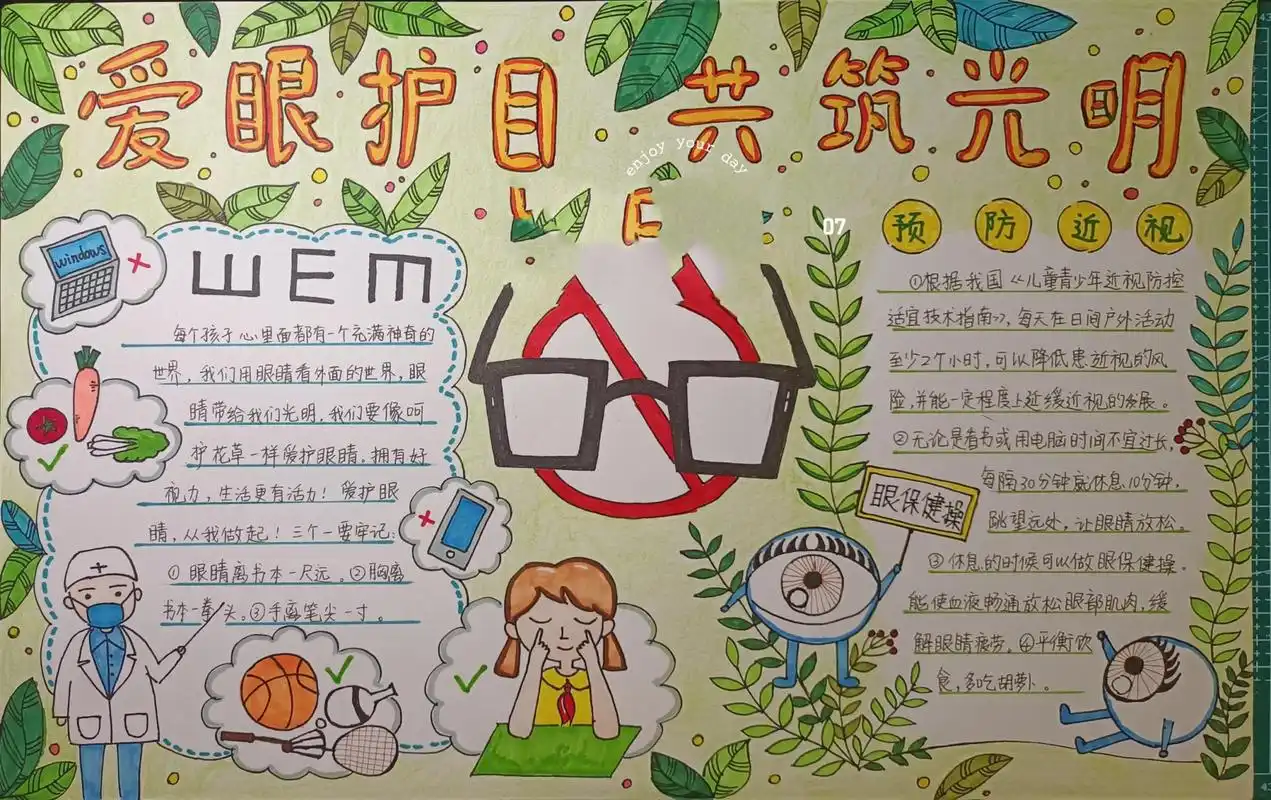 爱眼护目 共筑光明
enjoy your day
07
windows
山 E m
每个孩子心里面都有一个充满神奇的
世界，我们用眼睛看外面的世界，眼
睛带给我们光明，我们要像呵
护花草一样爱护眼睛。拥有好
视力，生活更有活力！爱护眼
睛，从我做起！三个一要牢记：
①眼睛离书本一尺远。②胸离
书本一拳头。③手离笔尖一寸。
预防近视
①根据我国《儿童青少年近视防控
适宜技术指南》，每天在日间户外活动
至少2个小时，可以降低患近视的风
险，并能一定程度上延缓近视的发展。
②无论是看书或用电脑时间不宜过长，
每隔30分钟就休息10分钟，
眺望远处，让眼睛放松。
③休息的时候可以做眼保健操。
能使血液畅通放松眼部肌肉，缓
解眼睛疲劳。④平衡饮
食，多吃胡萝卜。
眼保健操